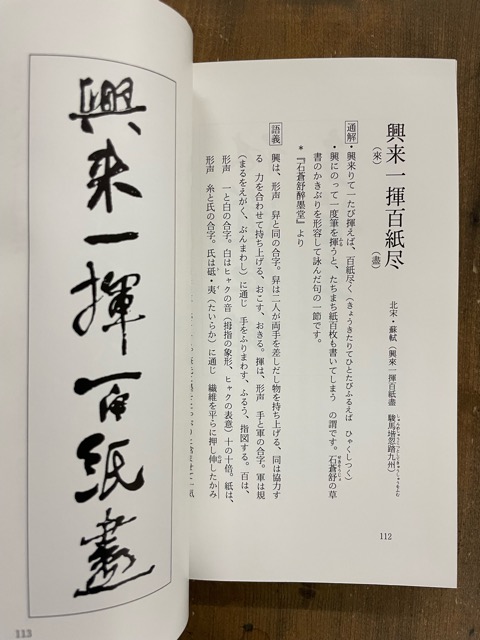 興来一揮百紙尽
（來）
（盡）
北宋・蘇軾（興来一揮百紙盡　駿馬埓忽踏九州）
通解・興来りて一たび揮えば、百紙尽く（きょうきたりてひとたびふるえば　ひゃくしつく）
・興にのって一度筆を揮うと、たちまち紙百枚も書いてしまう　の謂です。石蒼舒の草
書のかきぶりを形容して詠んだ句の一節です。
＊『石蒼舒醉墨堂』より
語義　興は、形声　舁と同の合字。舁は二人が両手を差しだし物を持ち上げる、同は協力す
る　力を合わせて持ち上げる、おこす、おきる。揮は、形声　手と軍の合字。軍は規
（まるをえがく、ぶんまわし）に通じ　手をふりまわす、ふるう、指図する。百は、
形声　一と白の合字。白はヒャクの音（拇指の象形、ヒャクの表意）十の十倍。紙は、
形声　糸と氏の合字。氏は砥・夷（たいらか）に通じ　繊維を平らに押し伸したかみ
112
興来一揮百紙盡
113